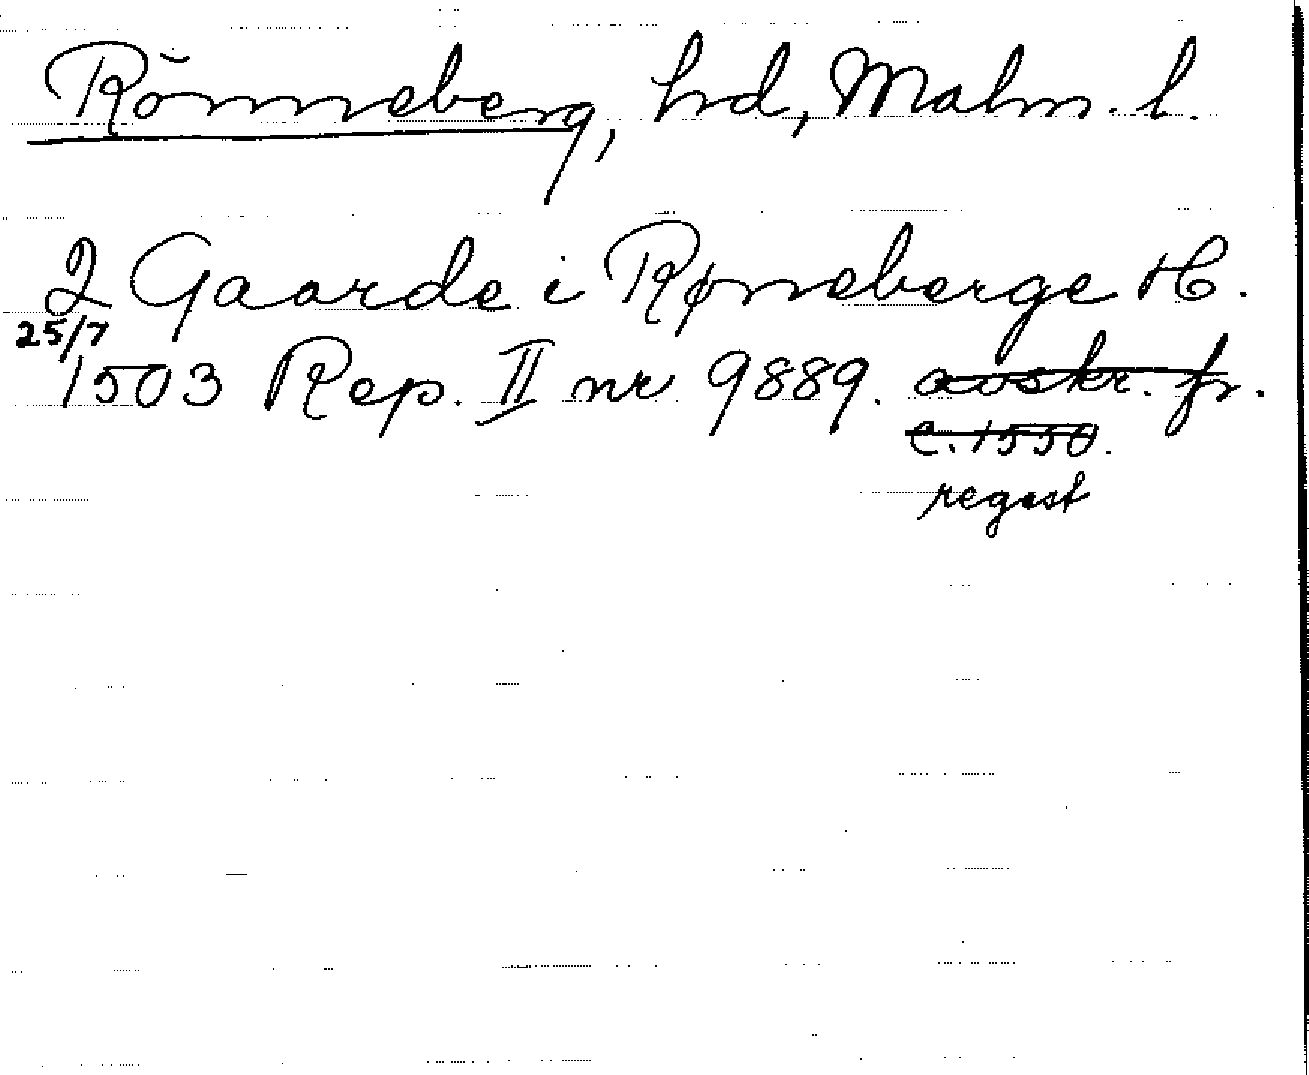 Rönneberg, hd, Malm. l.
2 Gaarde i Rønneberge H.
25/7
1503 Rep. II nr 9889. avskr. fr.
c. 1550.
regest